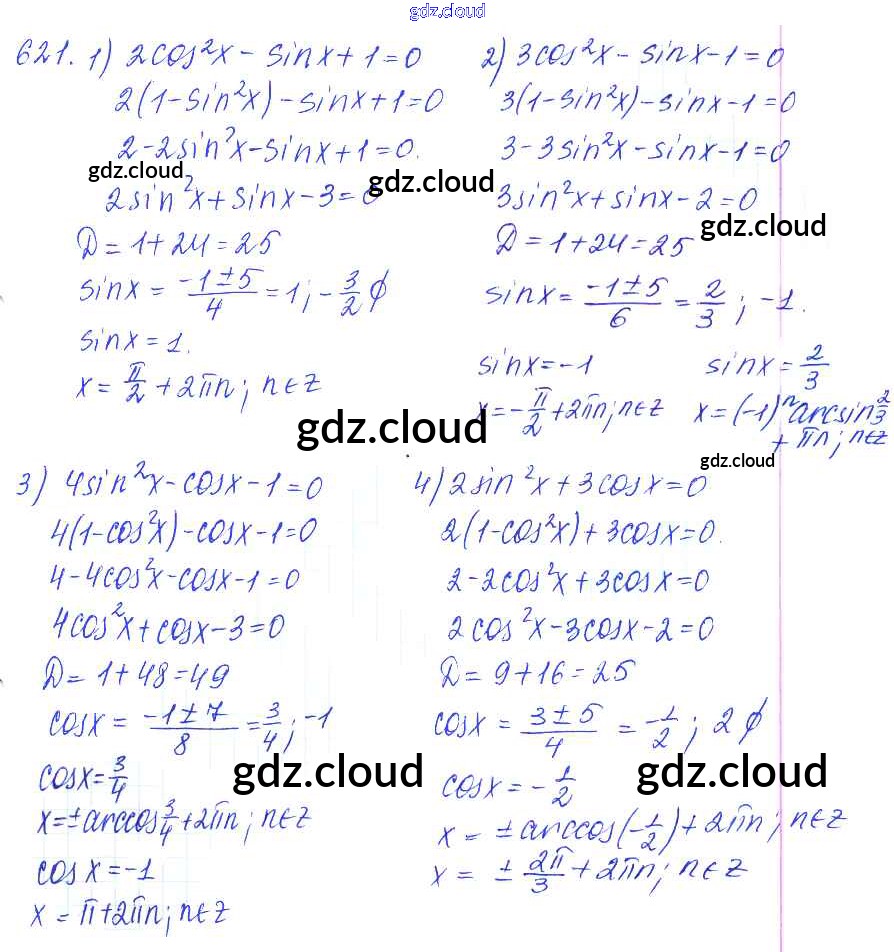 gdz.cloud
621. 1) 2cos²x - sinx + 1 = 0
2(1-sin²x) - sinx + 1 = 0
2 - 2sin²x - sinx + 1 = 0.
gdz.cloud
gdz.cloud
2sin²x + sinx - 3 = 0
D = 1 + 24 = 25
sinx = (-1 ± 5)/4 = 1; -3/2 ∅
sinx = 1.
x = π/2 + 2πn; n∈Z
2) 3cos²x - sinx - 1 = 0
3(1-sin²x) - sinx - 1 = 0
3 - 3sin²x - sinx - 1 = 0
3sin²x + sinx - 2 = 0
gdz.cloud
D = 1 + 24 = 25
sinx = (-1 ± 5)/6 = 2/3; -1.
sinx = -1
x = -π/2 + 2πn; n∈Z
sinx = 2/3
x = (-1)ⁿ arcsin 2/3
+ πn; n∈Z
gdz.cloud
gdz.cloud
3) 4sin²x - cosx - 1 = 0
4(1-cos²x) - cosx - 1 = 0
4 - 4cos²x - cosx - 1 = 0
4cos²x + cosx - 3 = 0
D = 1 + 48 = 49
cosx = (-1 ± 7)/8 = 3/4; -1
cosx = 3/4
gdz.cloud
x = ± arccos 3/4 + 2πn; n∈Z
cosx = -1
x = π + 2πn; n∈Z
4) 2sin²x + 3cosx = 0
2(1-cos²x) + 3cosx = 0.
2 - 2cos²x + 3cosx = 0
2cos²x - 3cosx - 2 = 0
D = 9 + 16 = 25
cosx = (3 ± 5)/4 = -1/2; 2 ∅
gdz.cloud
cosx = -1/2
x = ± arccos(-1/2) + 2πn; n∈Z
x = ± 2π/3 + 2πn; n∈Z